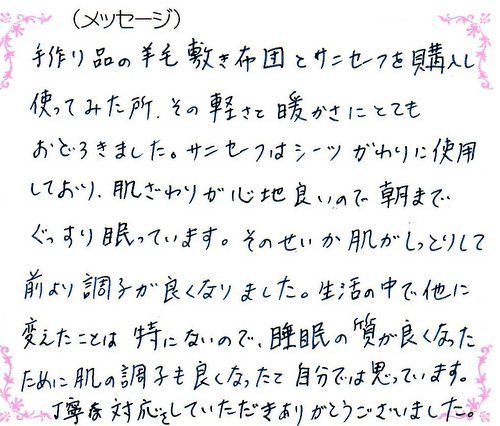 (メッセージ)
手作り品の羊毛敷き布団とサニセーフを購入し
使ってみた所、その軽さと暖かさにとても
おどろきました。サニセーフはシーツがわりに使用
しており、肌ざわりが心地良いので朝まで
ぐっすり眠っています。そのせいか肌がしっとりして
前より調子が良くなりました。生活の中で他に
変えたことは特にないので、睡眠の質が良くなった
ために肌の調子も良くなったと自分では思っています。
丁寧な対応をしていただきありがとうございました。